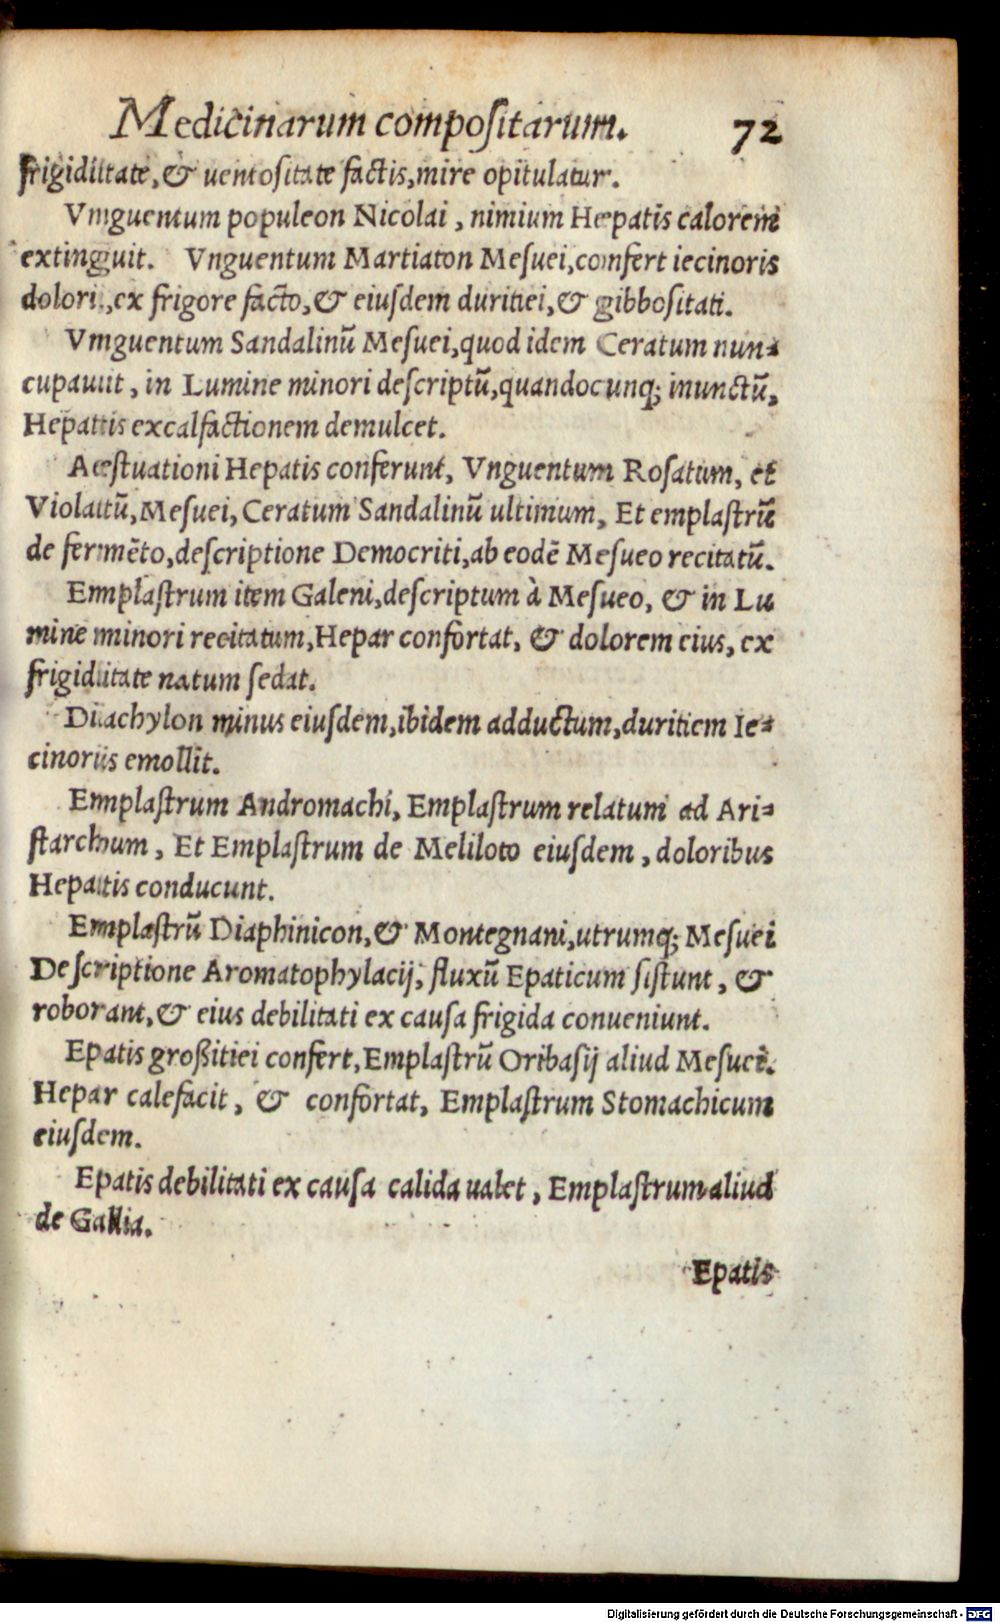 Medicinarum compositarum. 72
frigiditate, & uentositate factis, mire opitulatur.
Vnguentum populeon Nicolai, nimium Hepatis calorem
extinguit. Vnguentum Martiaton Mesuei, confert iecinoris
dolori, ex frigore facto, & eiusdem duritiei, & gibbositati.
Vnguentum Sandalinũ Mesuei, quod idem Ceratum nun=
cupauit, in Lumine minori descriptũ, quandocunq; inunctũ,
Hepatis excalfactionem demulcet.
Aestuationi Hepatis conferunt, Vnguentum Rosatum, et
Violatũ, Mesuei, Ceratum Sandalinũ ultimum, Et emplastrũ
de fermẽto, descriptione Democriti, ab eodẽ Mesueo recitatũ.
Emplastrum item Galeni, descriptum à Mesueo, & in Lu
mine minori recitatum, Hepar confortat, & dolorem eius, ex
frigiditate natum sedat.
Diachylon minus eiusdem, ibidem adductum, duritiem Ie=
cinoris emollit.
Emplastrum Andromachi, Emplastrum relatum ad Ari=
starchum, Et Emplastrum de Meliloto eiusdem, doloribus
Hepatis conducunt.
Emplastrũ Diaphinicon, & Montegnani, utrumq; Mesuei
Descriptione Aromatophylacij, fluxũ Epaticum sistunt, &
roborant, & eius debilitati ex causa frigida conueniunt.
Epatis großitiei confert, Emplastrũ Oribasij aliud Mesuei.
Hepar calefacit, & confortat, Emplastrum Stomachicum
eiusdem.
Epatis debilitati ex causa calida ualet, Emplastrum aliud
de Gallia.
Epatis
Digitalisierung gefördert durch die Deutsche Forschungsgemeinschaft - DFG